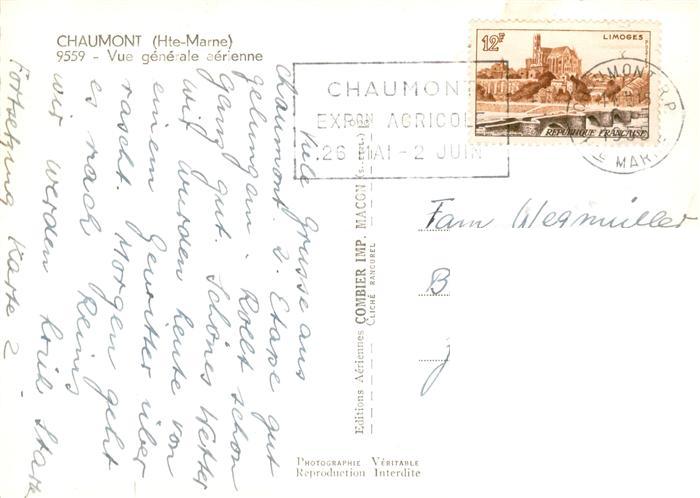 CHAUMONT (Hte-Marne)
9559 - Vue générale aérienne
Viele Grüsse aus
Chaumont. 2. Etape gut
gelungen. Rollt schon
ganz gut. Schönes Wetter
wir wurden heute von
einem Gewitter über
rascht. Morgen geht
es nach Reims
wir werden früh Start.
Fortsetzung Karte 2
CHAUMONT
EXPON AGRICOLE
26 MAI - 2 JUIN
12F
LIMOGES
POSTES
REPUBLIQUE FRANÇAISE
CHAUMONT R.P.
MARNE
Fam Wegmüller
B
J
Editions Aériennes COMBIER IMP. MACON (S.-et-L.)
CLICHÉ RANCUREL
PHOTOGRAPHIE VÉRITABLE
Reproduction Interdite